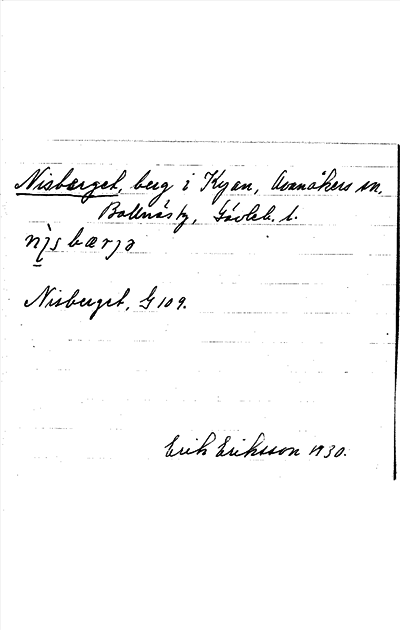 Nisberget, berg i Kyan, Avanåkers sn,
Bollnäs tg, Gävleb. l.
Nisberget, G 109.
Erik Eriksson 1930.